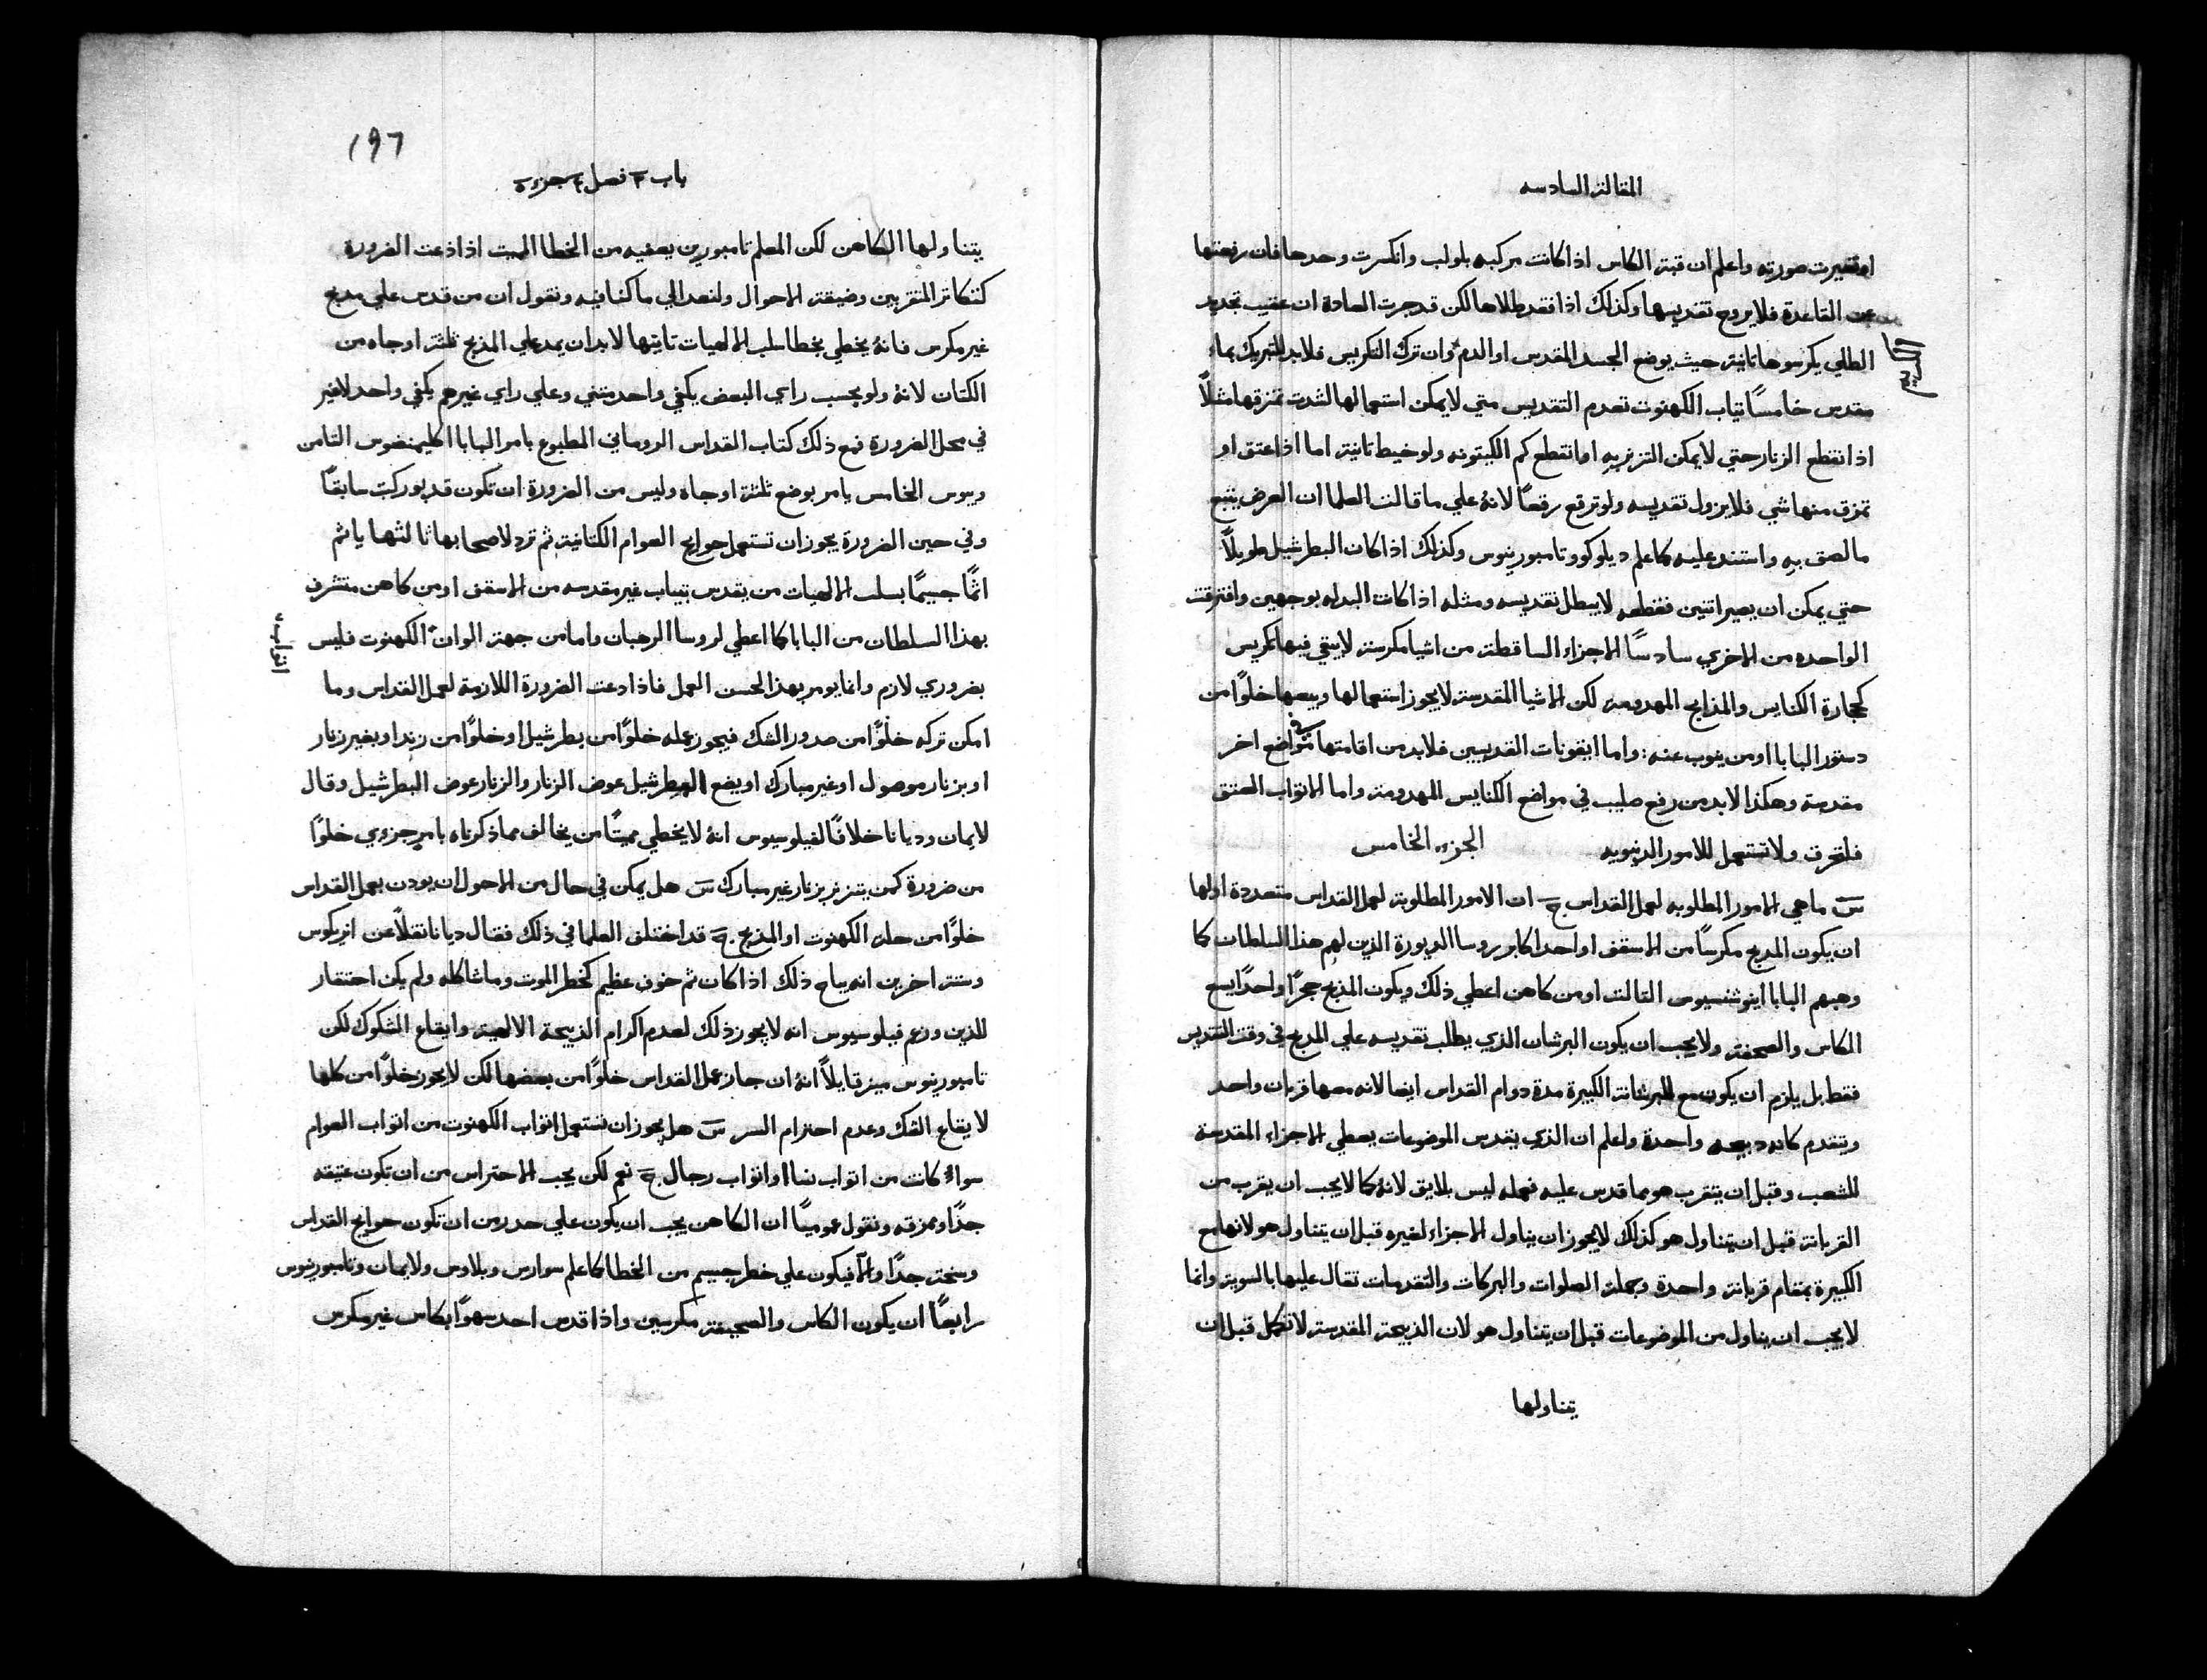 المقالة السادسه
او تغيرت صورته واعلم ان قبة الكاس اذا كانت مركبه بلولب وانكسرت وحدها فان رفعتها
عن القاعدة فلا يروح تقديسها وكذلك اذا فقد طلاها لكن قد جرت العادة ان عقيب تجديد
الطلي يكرسوها ثانية حيث يوضع الجسد المقدس او الدم وان ترك التكريس فلابد للتبريك بماء
مقدس خامسًا ثياب الكهنوت تعدم التقديس متي لا يمكن استعمالها لشدت تمزقها مثلًا
اذا نقطع الزنار حتي لا يمكن التزنر به او انقطع كم الكيتونه ولو خيط ثانية اما اذا عتق او
تمزق منها شي فلا يزول تقديسه ولو ترقع رقعًا لانهُ علي ما قالت العلما ان العرض يتبع
ما لصق به واستند عليه كما علم ديلوكو وتامبورينوس وكذلك اذا كان البطرشيل طويلًا
حتي يمكن ان يصير اثنين فقطعه لا يبطل تقديسه ومثله اذا كانت البدله بوجهين وافترقت
الواحده من الاخري سادسًا الاجزاء الساقطة من اشيا مكرسة لا يبقي فيها تكريس
كحجارة الكنايس والمذابح المهدومة لكن الاشيا المقدسة لا يجوز استعمالها وبيعها خلوًا من
دستور البابا او من ينوب عنه : واما ايقونات القديسين فلابد من اقامتها في مواضع اخر
مقدسة وهكذا لابد من رفع صليب في مواضع الكنايس المهدومة واما الاثواب العتق
فلتحرق ولا تستعمل للامور الدنيويه الجزء الخامس
س ما هي الامور المطلوبه لعمل القداس ج ان الامور المطلوبة لعمل القداس متعددة اولها
ان يكون المدبح مكرسًا من الاسقف او احد اكابر روسا الديورة الذين لهم هذا السلطان كما
وهبهم البابا اينوشنسيوس الثالث او من كاهن اعطي ذلك ويكون المذبح حجرًا واحدًا يسع
الكاس والصحفة ولا يجب ان يكون البرشان الذي يطلب تقديسه علي المدبح في وقت التقديس
فقط بل يلزم ان يكون مع البرشانة الكبيرة مدة دوام القداس ايضا لانه معها قربان واحد
ويتقدم كانه دبيحه واحدة واعلم ان الذي يقدس الموضوعات يعطي الاجزاء المقدسة
للشعب وقبل ان يتقرب هو بما قدس عليه فعمله ليس بلايق لانهُ كما لا يجب ان يقرب من
القربانة قبل ان يتناول هو كذلك لا يجوز ان يناول الاجزاء لغيره قبل ان يتناول هو لانها مع
الكبيرة بمقام قربانة واحدة وجملة الصلوات والبركات والتقدمات تقال عليها بالسوية وانما
لا يجب ان يناول من الموضوعات قبل ان يتناول هو لان الذبيحة المقدسة لا تكمل قبل ان
يتناولها
١٩٦
باب ٣ فصل ٤ جزء ٥
يتناولها الكاهن لكن المعلم تامبورين يعفيه من الخطا المميت اذا دعت الضرورة
كتكاثر المتقربين وضيقة الاحوال ولنعد الي ما كنا فيه ونقول ان من قدس علي مدبح
غير مكرس فانهُ يخطي بخطا سلب الالهيات ثانيها لابد ان يمد علي المذبح ثلثة اوجاه من
الكتان لانهُ ولو بحسب راي البعض يكفي واحد متني وعلي راي غيرهم يكفي واحد لا غير
في محل الضرورة فمع ذلك كتاب القداس الروماني المطبوع بامر البابا اكليمنضوس الثامن
وبيوس الخامس يامر بوضع ثلثة اوجاه وليس من الضرورة ان تكون قد بوركت سابقًا
وفي حين الضرورة يجوز ان تستعمل حوايج العوام الكتانية ثم ترد لاصحابها ثالثها ياثم
اثمًا جسيمًا بسلب الالهيات من يقدس بتياب غير مقدسه من الاسقف او من كاهن متشرف
بهذا السلطان من البابا كما اعطي لروسا الرهبان واما من جهة الوان الكهنوت فليس
اثوابه
بضروري لازم وانما يومر بهذا لحسن العمل فاذا دعت الضرورة اللازمة لعمل القداس وما
امكن تركه خلوًا من صدور الشك فيجوز عمله خلوًا من بطرشيل او خلوًا من زند او بغير زنار
او بزنار موصول او غير مبارك او يضع البطرشيل عوض الزنار والزنار عوض البطرشيل وقال
لايمان وديانا خلافًا لفيلوسيوس انهُ لا يخطي مميتًا من يخالف مما ذكرناه بامر جزوي خلوًا
من ضرورة كمن يتزنر بزنار غير مبارك س هل يمكن في حال من الاحوال ان يودن بعمل القداس
خلوًا من حلة الكهنوت او المذبح ج قد اختلف العلما في ذلك فقال ديانا نقلًا عن انريكوس
وستة اخرين انه يباح ذلك اذا كان ثم خوف عظيم كخطر الموت وما شاكله ولم يكن احتقار
للدين وزعم فيلوسيوس انه لا يجوز ذلك لعدم اكرام الذبيحة الالهية وايقاع الشكوك لكن
تامبورينوس ميز قايلًا انهُ ان جاز عمل القداس خلوًا من بعضها لكن لا يجوز خلوًا من كلها
لايقاع الشك وعدم احترام السر س هل يجوز ان تستعمل اثواب الكهنوت من اثواب العوام
سواءً كانت من اثواب نسا او اثواب رجال ج نعم لكن يجب الاحتراس من ان تكون عتيقه
جدًا وممزقه ونقول عموميًا ان الكاهن يجب ان يكون علي حدر من ان تكون حوايج القداس
وسخة جدًا والّا فيكون علي خطر جسيم من الخطا كما علم سوارس وبلاوس ولايمان وتامبورينوس
رابعًا ان يكون الكاس والصحيفة مكرسين واذا قدس احد سهوًا بكاس غير مكرس